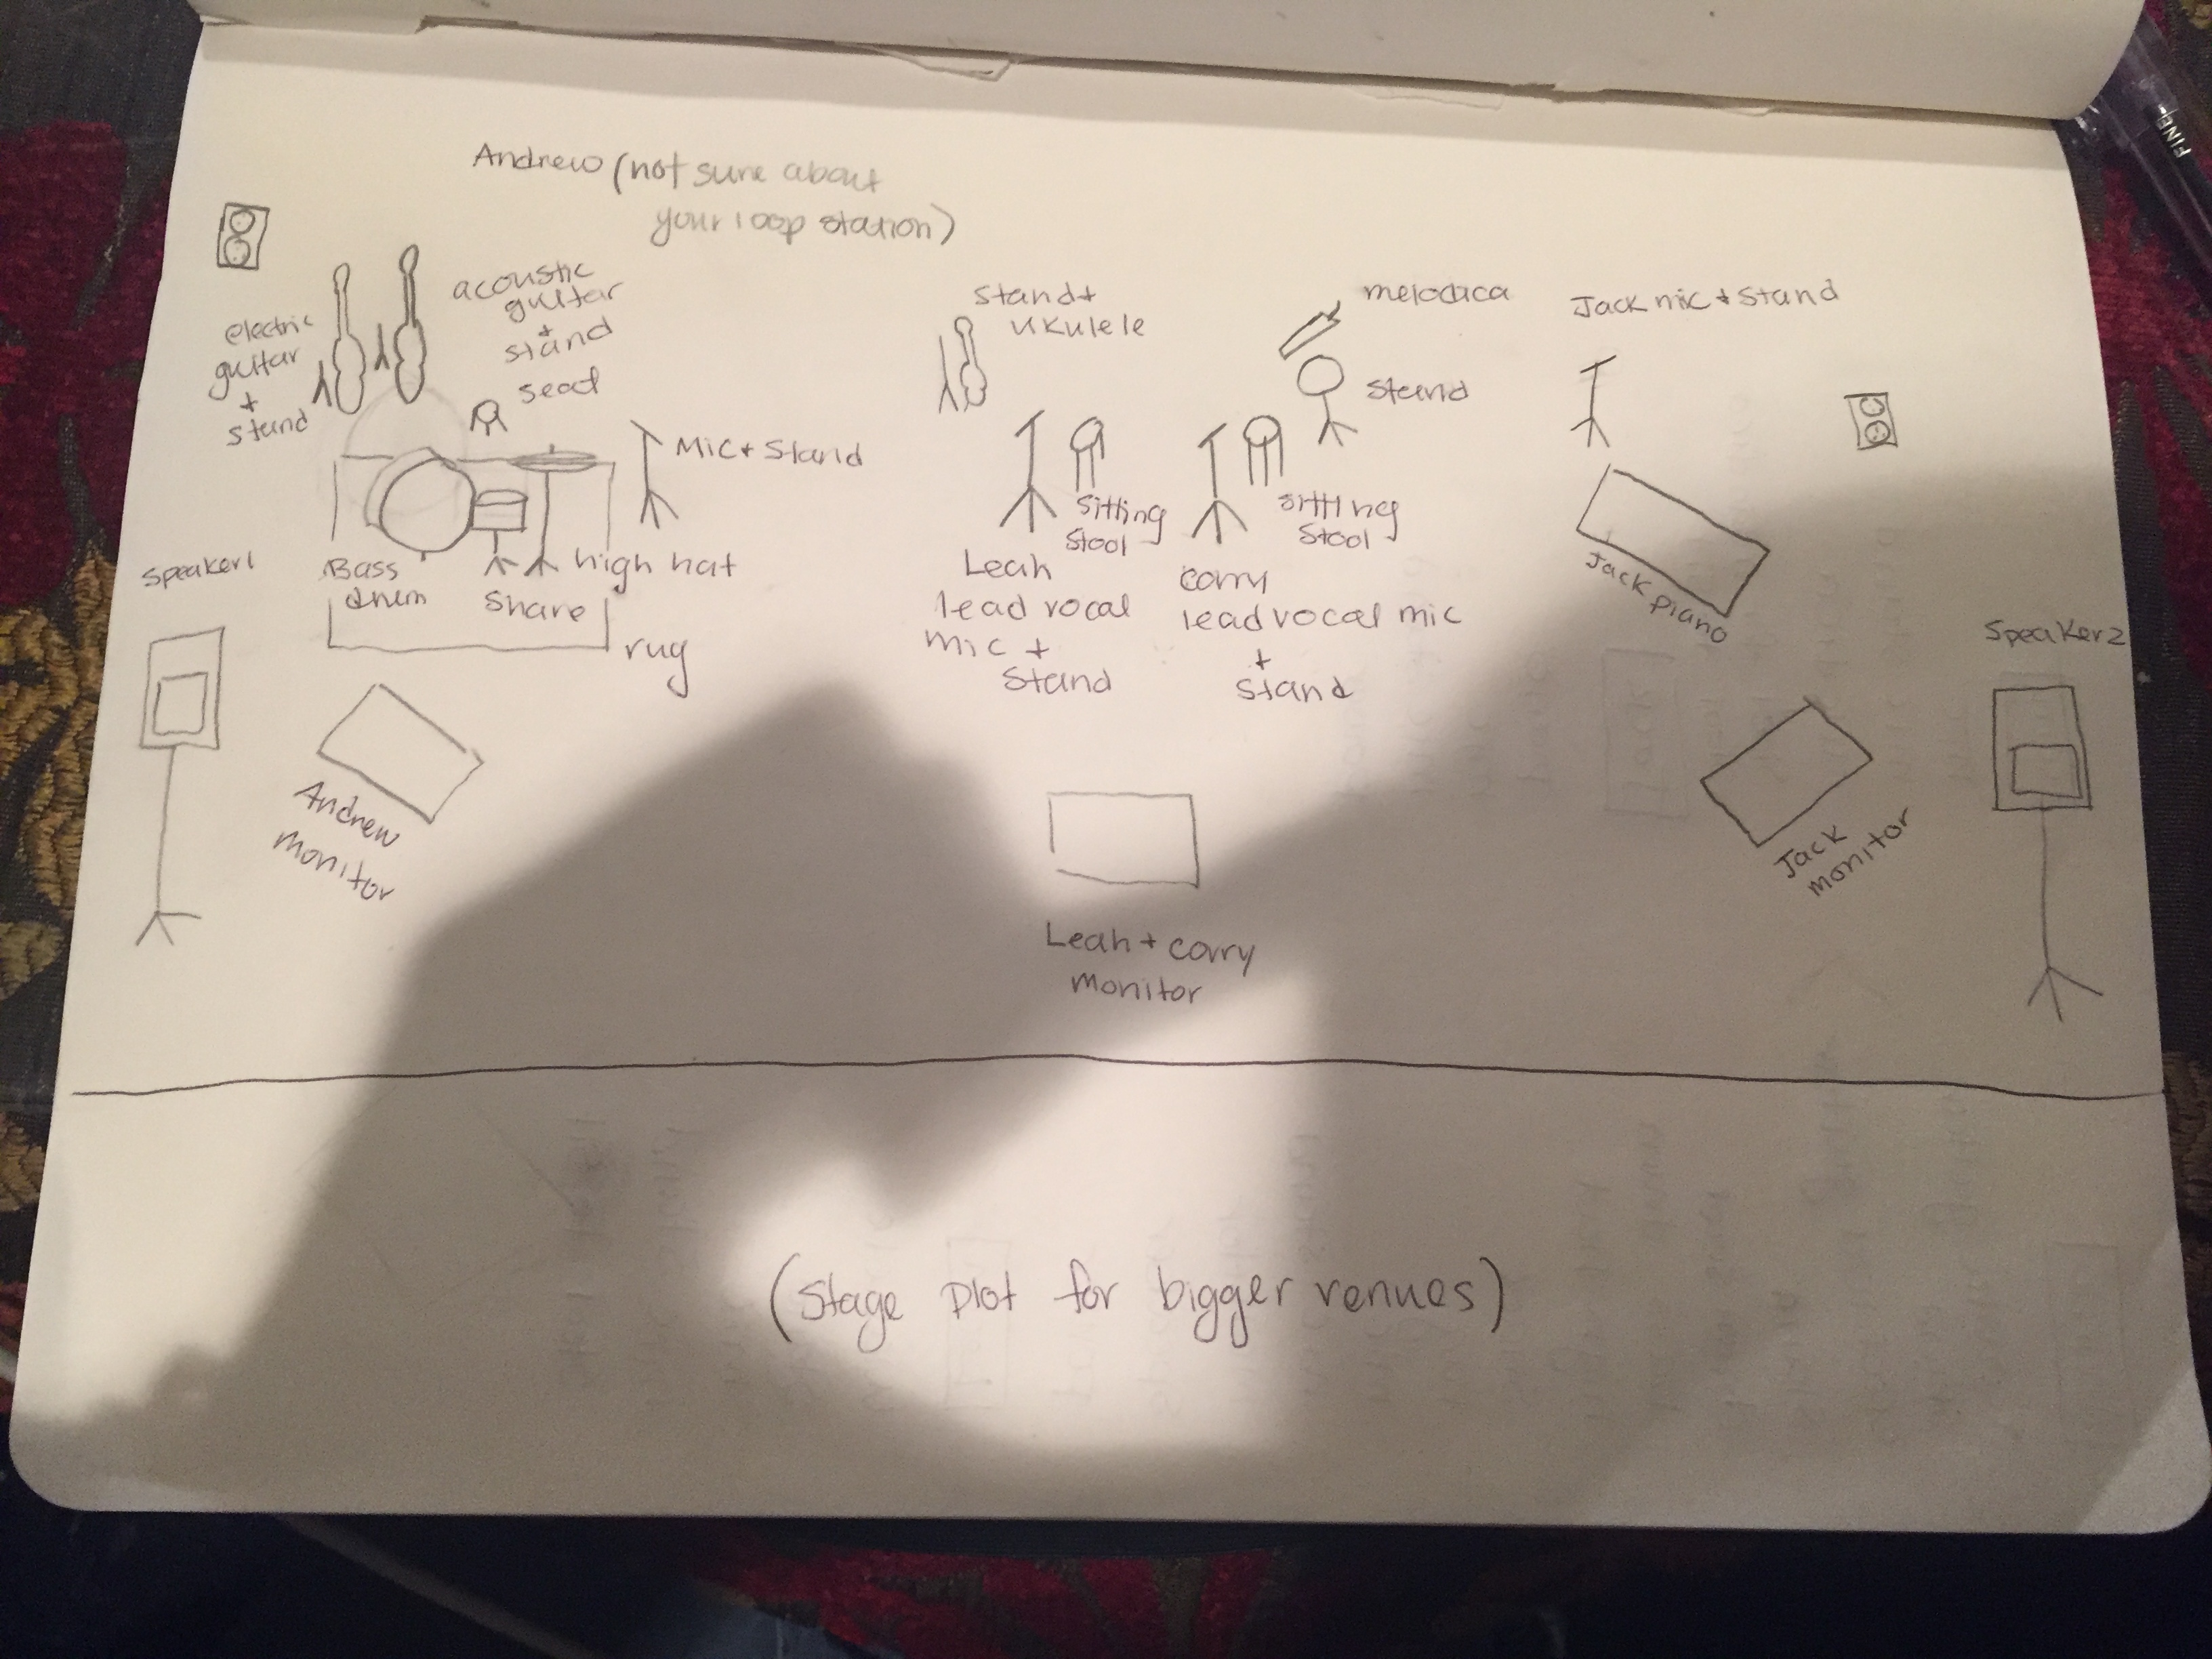 Andrew (not sure about
your loop station)
electric
guitar
+
stand
acoustic
guitar
+
stand
seat
Mic + Stand
Speaker 1
Bass
drum
Share
high hat
rug
Andrew
monitor
Stand +
ukulele
sitting
stool
Leah
lead vocal
mic +
Stand
melodica
Stand
sitting
stool
corry
lead vocal mic
+
stand
Jack mic + Stand
Jack piano
Speaker 2
Jack
monitor
Leah + corry
monitor
(Stage plot for bigger venues)
FINE